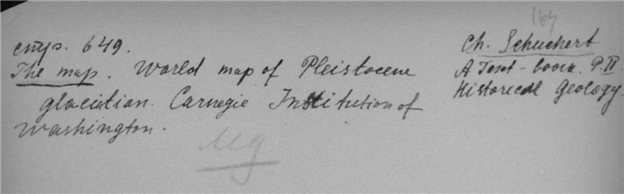 169
стр. 649.
Ch. Schuchert
The map. World map of Pleistocene
A Text-book. P. II
glaciation. Carnegie Institution of
Historical Geology.
Washington.